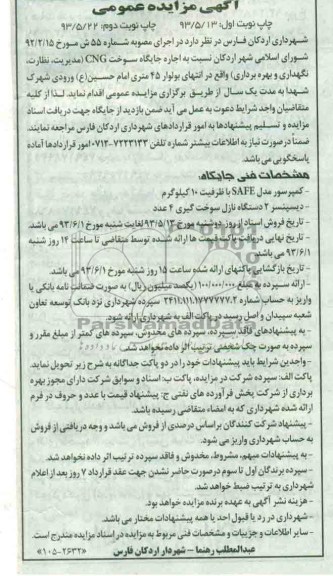 آگهی مزایده عمومی
چاپ نوبت اول: ۹۳/۵/۱۳ چاپ نوبت دوم: ۹۳/۵/۲۲
شهرداری اردکان فارس در نظر دارد در اجرای مصوبه شماره ۵۵ ش مورخ ۹۲/۲/۱۵
شورای اسلامی شهر اردکان نسبت به اجاره جایگاه سوخت CNG (مدیریت، نظارت،
نگهداری و بهره برداری) واقع در انتهای بولوار ۴۵ متری امام حسین(ع) ورودی شهرک
شهدا به مدت یک سال از طریق برگزاری مزایده عمومی اقدام نماید. لذا از کلیه
متقاضیان واجد شرایط دعوت به عمل می آید ضمن بازدید از جایگاه جهت دریافت اسناد
مزایده و تسلیم پیشنهادها به امور قراردادهای شهرداری اردکان فارس مراجعه نمایند.
ضمنا در صورت نیاز به اطلاعات بیشتر شماره تلفن ۷۲۲۳۱۳۲-۰۷۱۲ امور قراردادها آماده
پاسخگویی می باشد.
مشخصات فنی جایگاه:
- کمپرسور مدل SAFE با ظرفیت ۱۰ کیلوگرم
- دیسپنسر ۲ دستگاه نازل سوخت گیری ۴ عدد
- تاریخ فروش اسناد از روز دوشنبه مورخ ۹۳/۵/۱۳ لغایت شنبه مورخ ۹۳/۶/۱ می باشد.
- تاریخ نهایی دریافت پاکت قیمت ها ارائه شده توسط متقاضی تا ساعت ۱۴ روز شنبه
۹۳/۶/۱ می باشد.
- تاریخ بازگشایی پاکتهای ارائه شده ساعت ۱۵ روز شنبه مورخ ۹۳/۶/۱ می باشد.
- ارائه سپرده به مبلغ ۱۰۰/۰۰۰/۰۰۰ (یکصد میلیون ریال) به صورت ضمانت نامه بانکی یا
واریز به حساب شماره سپرده شهرداری نزد بانک توسعه تعاون
شعبه سپیدان و اصل رسید در پاکت الف به شهرداری ارائه شود.
- به پیشنهادهای فاقد سپرده، سپرده های مخدوش، سپرده های کمتر از مبلغ مقرر و
سپرده به صورت چک شخصی ترتیب اثر داده نخواهد شد.
- واجدین شرایط باید پیشنهادات خود را در دو پاکت جداگانه به شرح زیر تحویل نماید.
پاکت الف: سپرده شرکت در مزایده، پاکت ب: اسناد و سوابق شرکت دارای مجوز بهره
برداری از شرکت پخش فرآورده های نفتی ج: پیشنهاد قیمت با عدد و حروف در فرم
ارائه شده شهرداری که به امضاء متقاضی رسیده باشد.
- پیشنهاد شرکت کنندگان براساس درصدی از فروش می باشد و وجه دریافتی از فروش
به حساب شهرداری واریز می شود.
- به پیشنهادات مبهم، مشروط، مخدوش و فاقد سپرده ترتیب اثر داده نخواهد شد.
- سپرده برندگان اول تا سوم در صورت حاضر نشدن جهت عقد قرارداد ۷ روز بعد از اعلام
شهرداری به ترتیب ضبط خواهد شد.
- هزینه نشر آگهی به عهده برنده مزایده خواهد بود.
- شهرداری در رد یا قبول احد یا همه پیشنهادات مختار می باشد.
- سایر اطلاعات و جزییات و مشخصات فنی مربوط به مزایده در اسناد مزایده مندرج است.
عبدالمطلب رهنما – شهردار اردکان فارس «۱۰۵-۲۶۳۲»